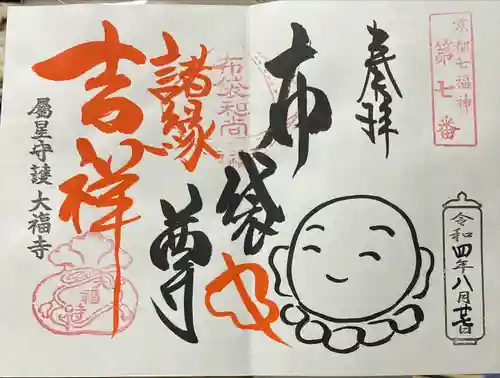 京都七福神
第七番
奉拝
令和四年八月廿日
布袋
尊
布袋和尚
諸縁
吉祥
屬星守護 大福寺